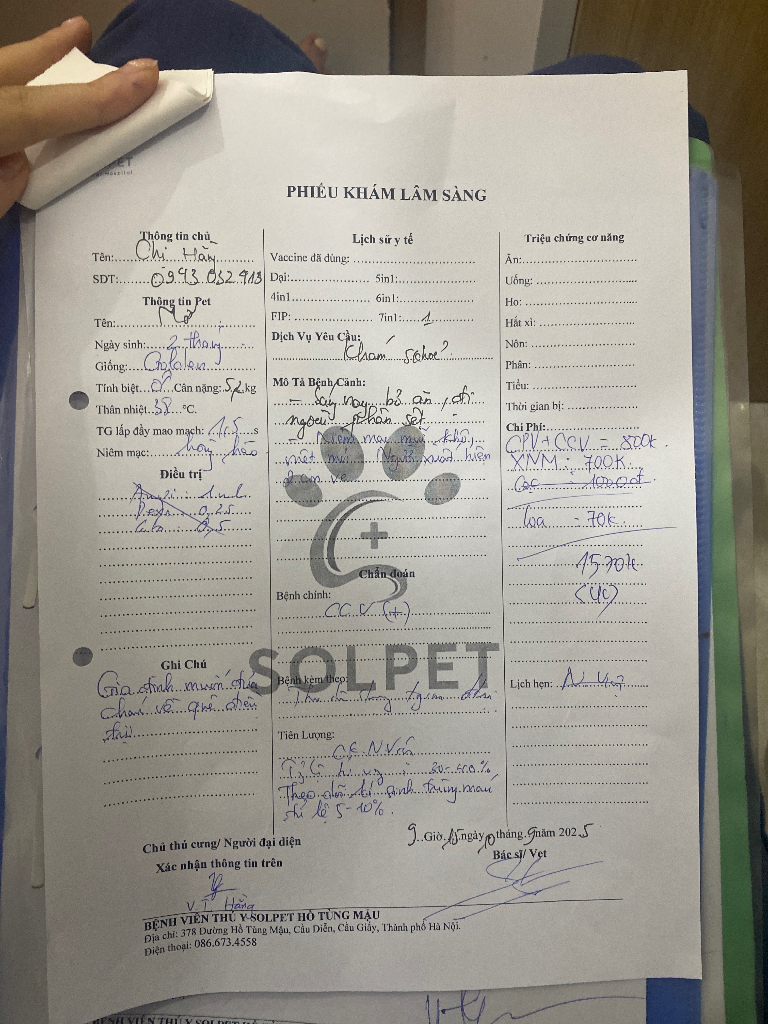 PET
PHIẾU KHÁM LÂM SÀNG
Thông tin chủ
Tên: Chị Hằng
SDT: 0943 032 913
Thông tin Pet
Tên:
Ngày sinh: 2 tháng
Giống: Golden
Tính biệt ♂ Cân nặng: 5,2 kg
Thân nhiệt: 38 °C.
TG lấp đầy mao mạch: 1.5 s
Niêm mạc: hồng hào
Điều trị
0,25
0,5
Ghi Chú
Gia đình muốn đưa
cháu về quê điều
trị
Lịch sử y tế
Vaccine đã dùng:
Dại: 5in1:
4in1 6in1:
FIP: 7in1: 1
Dịch Vụ Yêu Cầu:
Khám s.khoẻ
Mô Tả Bệnh Cảnh:
- Sáng nay bỏ ăn, đi
ngoài phân sệt
- Niêm mạc mũi khô,
mệt mỏi. Người xuất hiện
Chẩn đoán
Bệnh chính:
CCV (+)
SOLPET
Bệnh kèm theo:
Tiên Lượng:
30-40%
Theo dõi kí sinh trùng máu
tỉ lệ 5-10%.
Triệu chứng cơ năng
Ăn:
Uống:
Ho:
Hắt xì:
Nôn:
Phân:
Tiểu:
Thời gian bị:
Chi Phí:
CPV+CCV = 800k.
XNM: 700k.
loa = 70k.
1570k
(CK)
Lịch hẹn:
Chủ thú cưng/ Người đại diện
Xác nhận thông tin trên
V.T Hằng
9 Giờ 15 ngày 10 tháng 9 năm 2025
Bác sĩ/ Vet
BỆNH VIỆN THÚ Y SOLPET HỒ TÙNG MẬU
Địa chỉ: 378 Đường Hồ Tùng Mậu, Cầu Diễn, Cầu Giấy, Thành phố Hà Nội.
Điện thoại: 086.673.4558